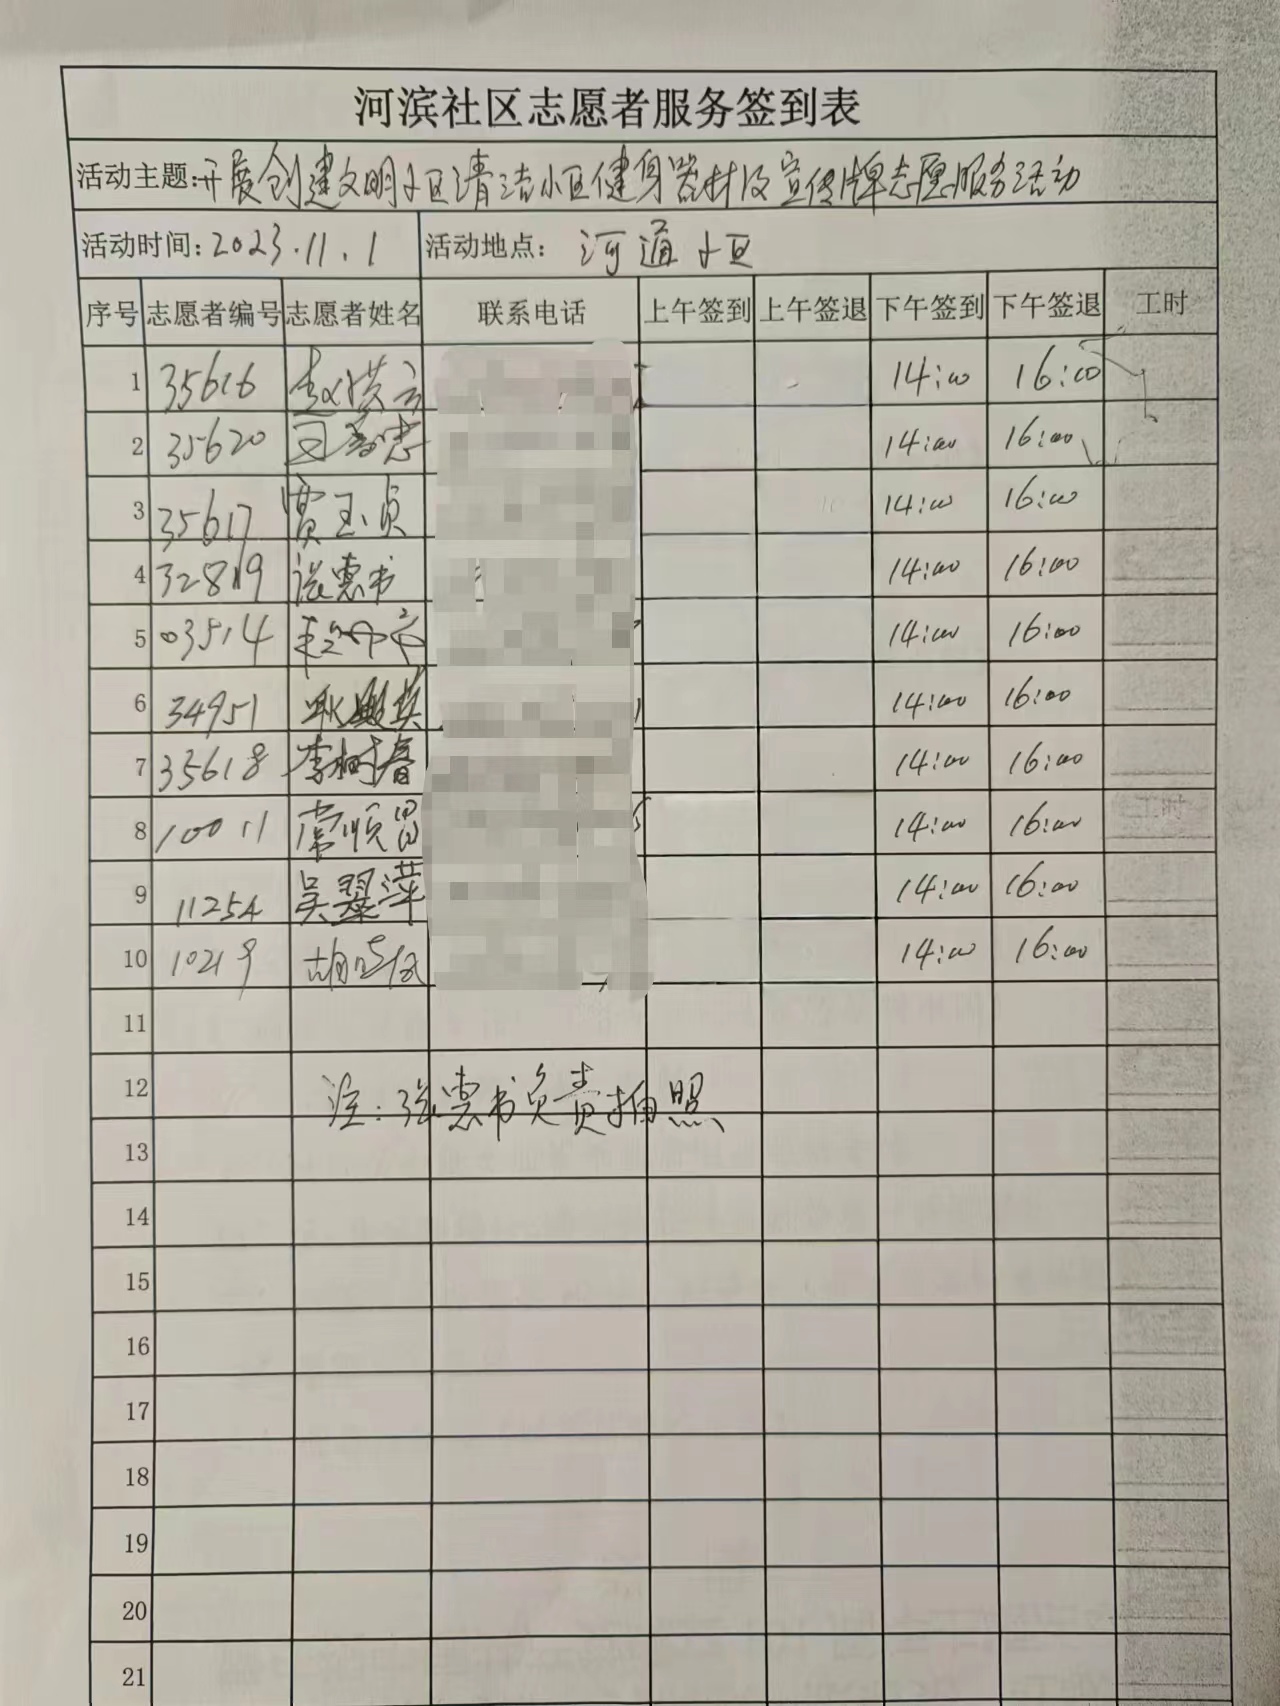 河滨社区志愿者服务签到表
活动主题:开展创建文明小区清洁小区健身器材及宣传牌志愿服务活动
活动时间:2023.11.1 活动地点: 河通小区
序号 志愿者编号 志愿者姓名 联系电话 上午签到 上午签退 下午签到 下午签退 工时
1 35616 赵洪云 14:00 16:00
2 35620 14:00 16:00
3 35617 贾玉贞 14:00 16:00
4 32819 张惠书 14:00 16:00
5 03514 14:00 16:00
6 34951 14:00 16:00
7 35618 李树春 14:00 16:00
8 10011 常顺 14:00 16:00
9 11254 吴翠萍 14:00 16:00
10 10219 胡 14:00 16:00
11
12
注:张惠书负责拍照
13
14
15
16
17
18
19
20
21